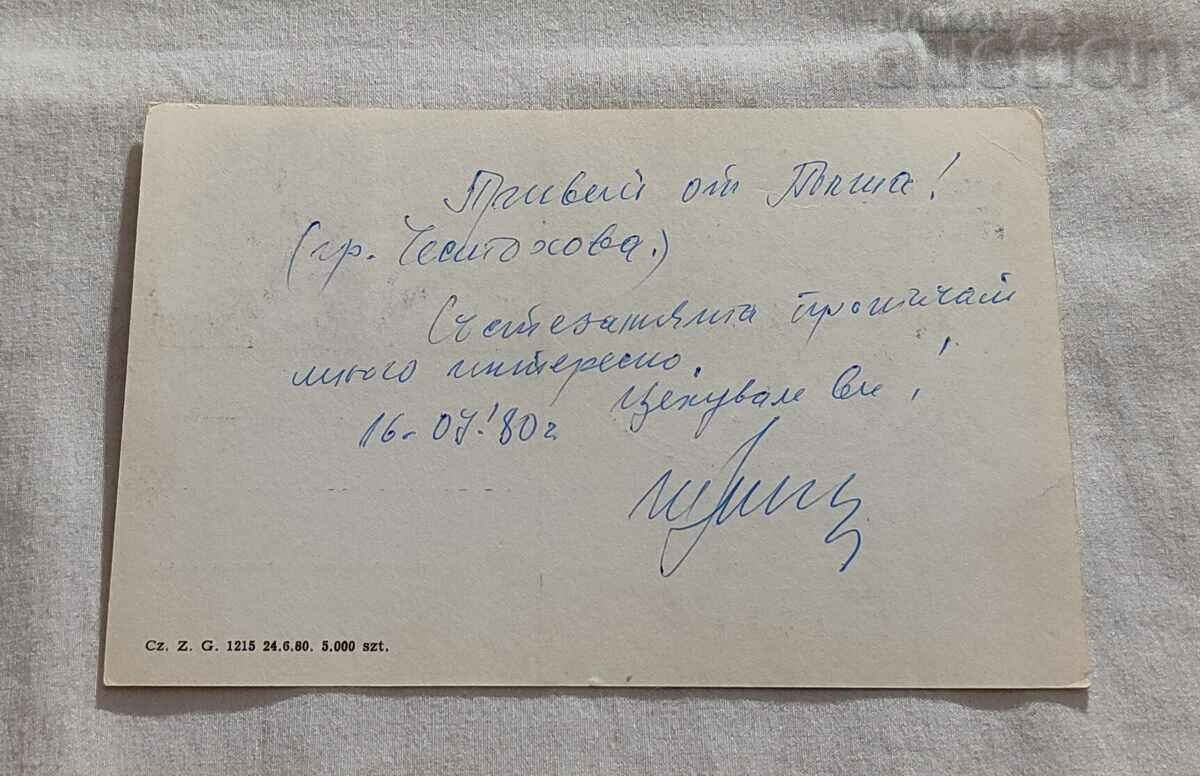 auction
Привет от Полша!
(гр. Ченстохова.)
Състезанията протичат
много интересно.
Целувам Ви!
16.07.'80г.
Cz. Z. G. 1215 24.6.80. 5.000 szt.